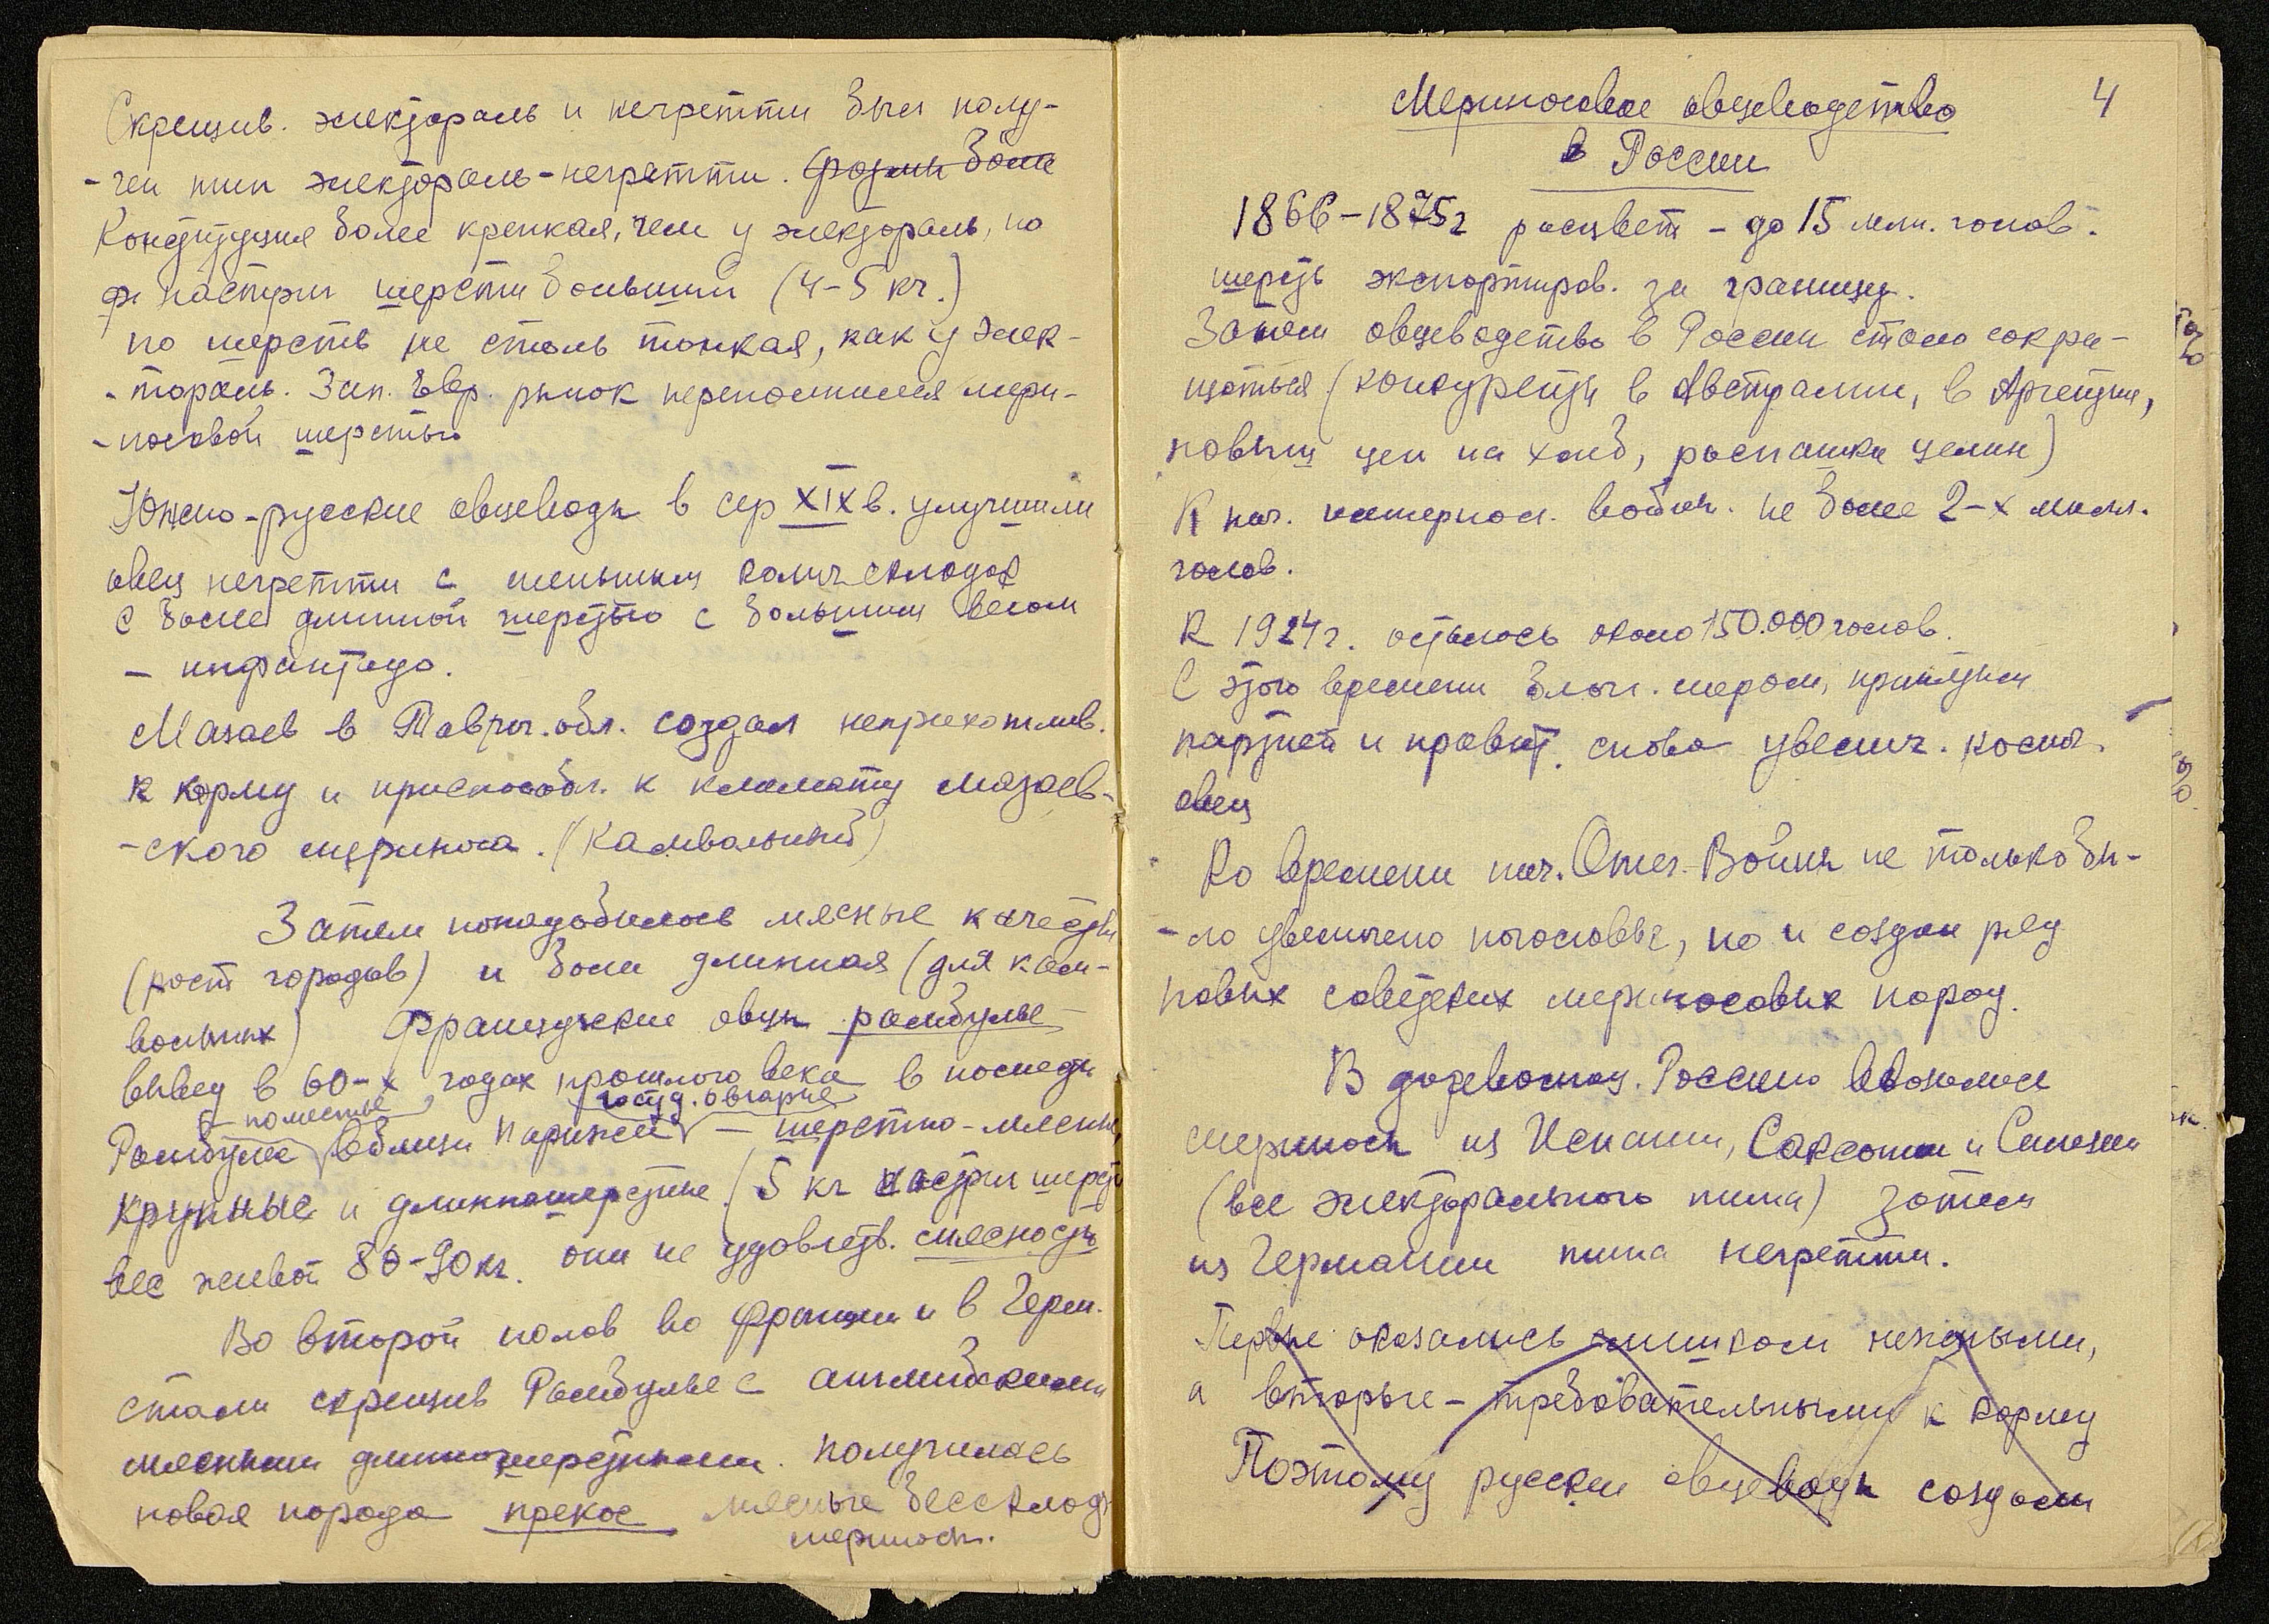 Скрещив. электораль и негретти был полу-
-чен тип электораль-негретти.
Конституция более крепкая, чем у электораль, но
настриг шерсти больший (4-5 кг.)
но шерсть не столь тонкая, как у элек-
-тораль. Зап. Евр. рынок переполнился мери-
-носовой шерстью
Южно-русские овцеводы в сер XIX в. улучшили
овец негретти с меньшим колич складок
с более длинной шерстью с большим весом
- инфантадо.
Мазаев в Таврич. обл. создал неприхотлив.
к корму и приспособл. к климату мазаев-
-ского мериноса. (Камвольный)
Затем понадобилось мясные качества
(рост городов) и более длинная (для кам-
вольных) Французские овцы рамбулье
вывед в 60-х годах прошлого века в
поместье госуд. овчарне
Рамбулье вблизи Парижа - шерстно-мясные
крупные и длинношерстные (5 кг настриг шерст
вес живой 80-90 кг. они не удовлетв. мясность
Во второй полов во Франции и в Герм.
стали скрещив Рамбулье с английскими
мясными длинношерстными. получилась
новая порода прекос мясные бесскладч
меринос.
4
Мериносовое овцеводство
в России
1866-1875 г расцвет - до 15 млн. голов.
шерсть экспортиров. за границу.
Затем овцеводство в России стало сокра-
щаться (конкуренция в Австралии, в Аргентин,
повыш цен на хлеб, распашка целин)
К нач. империал. войны. не более 2-х милл.
голов.
К 1924 г. осталось около 150.000 голов.
С этого времени благ. мерам, принятым
партией и правит. снова увелич. колич.
овец
Ко времени нач. Отеч. Войны не только бы-
-ло увеличено поголовье, но и создан ряд
новых советских мериносовых пород.
В дореволюц. Россию ввозились
мериносы из Испании, Саксонии и Силезии
(все электорального типа) затем
из Германии типа негретти.
Первые оказались слишком нежными,
а вторые - требовательными к корму
Поэтому русские овцеводы создали